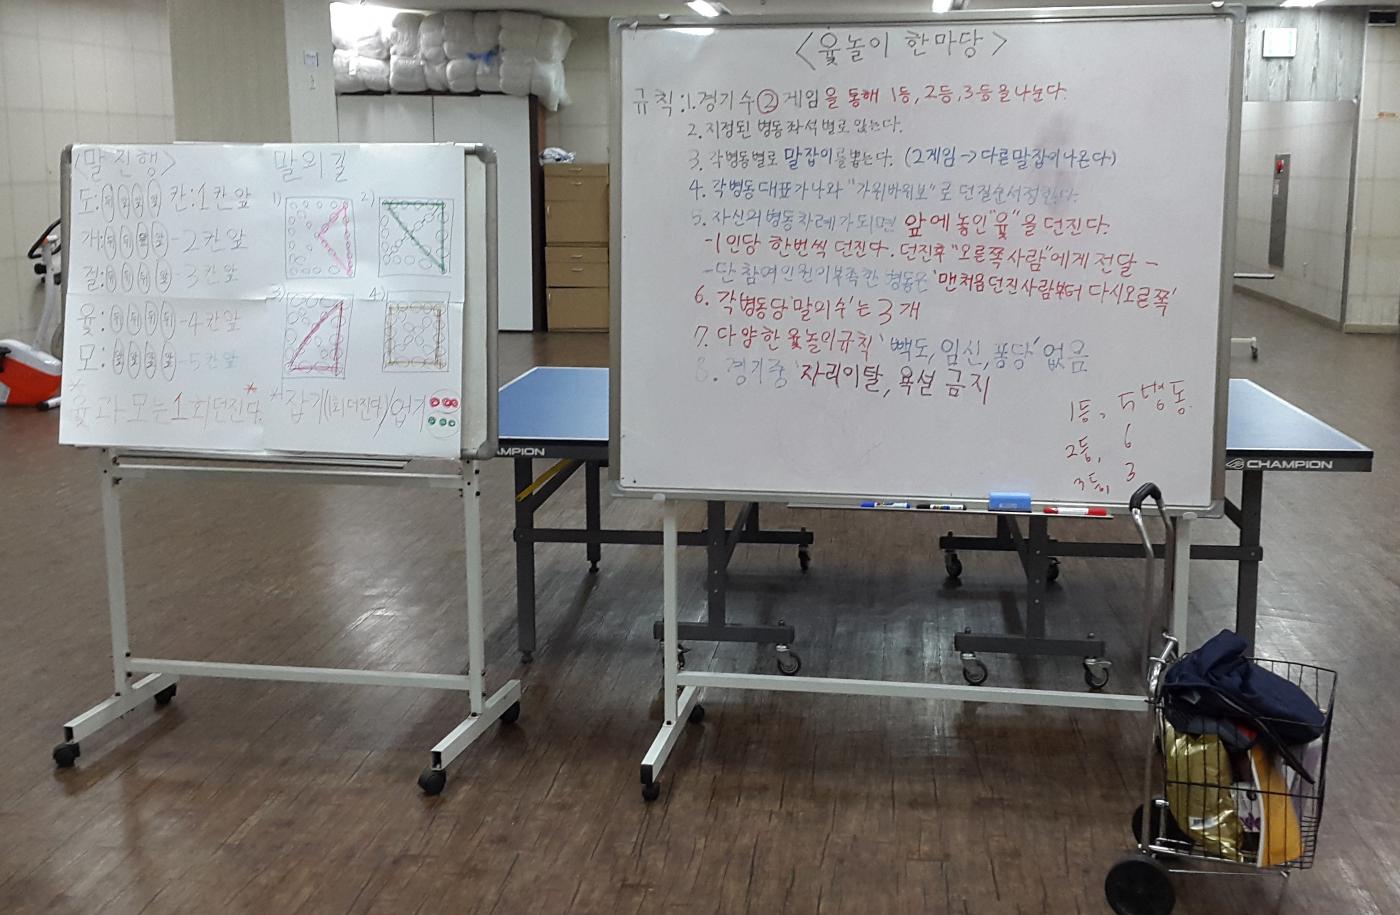 <말 진행> 말의 길
도: 칸:1칸 앞
개: -2칸 앞
걸: -3칸 앞
윷: -4칸 앞
모: -5칸 앞
1) 2)
3) 4)
* 윷과 모는 1회 던진다. * *잡기(1회 더진다) 업기
<윷놀이 한마당>
규칙:1. 경기수 ② 게임을 통해 1등, 2등, 3등을 나눈다.
2. 지정된 병동좌석별로 앉는다.
3. 각병동별로 말잡이를 뽑는다. (2게임 → 다른말잡이나온다)
4. 각병동 대표가나와 "가위바위보"로 던질순서정한다.
5. 자신의 병동차례가되면 앞에 놓인 "윷"을 던진다.
-1인당 한번씩 던진다. 던진후 "오른쪽사람"에게 전달-
-단 참여인원이부족한 병동은 '맨처음던진사람부터 다시오른쪽'
6. 각병동당 '말의수'는 3개
7. 다양한 윷놀이규칙 '빽도, 임신, 퐁당' 없음
8. 경기중 자리이탈, 욕설 금지
1등, 5병동
2등, 6
3등, 3
CHAMPION